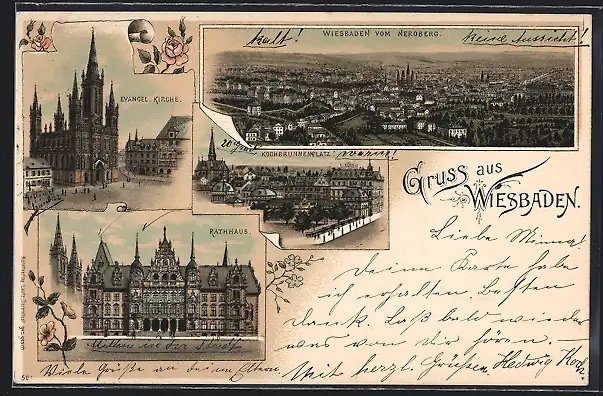 kalt!
WIESBADEN VOM NEROBERG.
keine Aussicht!
EVANGEL. KIRCHE.
KOCHBRUNNENPLATZ
warm!
GRUSS aus
WIESBADEN.
RATHHAUS.
Liebe Minna!
Deine Karte habe
ich erhalten. Besten
Dank. Laß bald wieder
was von dir hören.
Mit herzl. Grüßen Hedwig
Mitten in der Stadt
Viele Grüße an deine Eltern